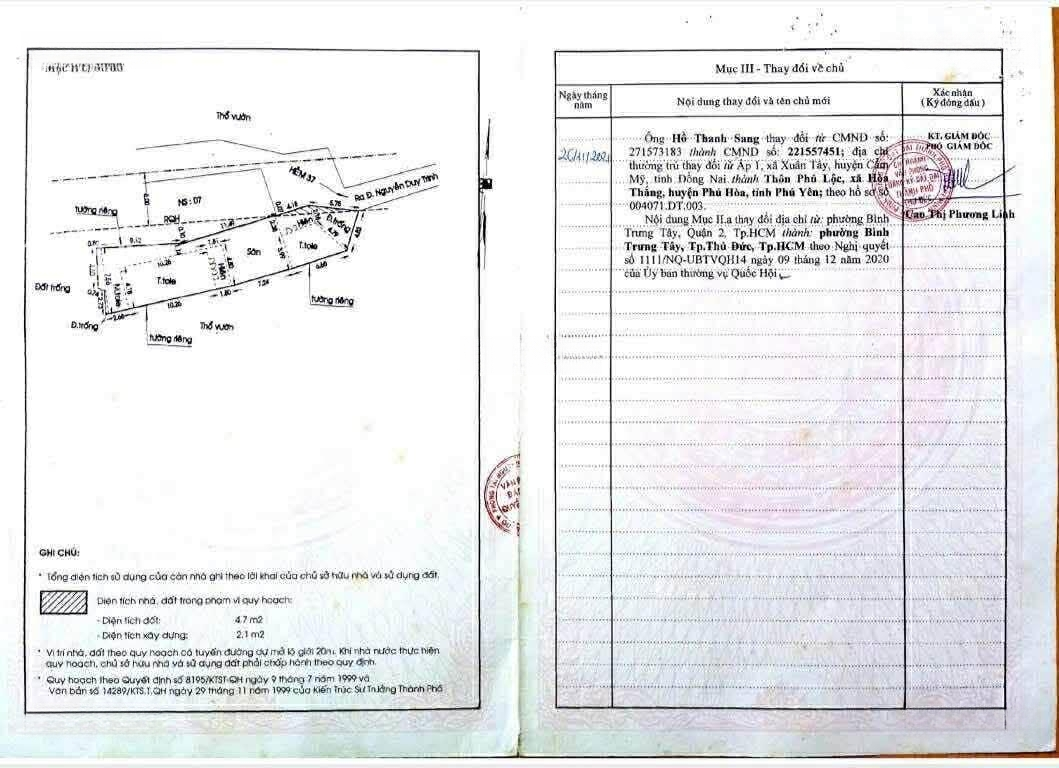 Thổ vườn
HẺM 37
Ra Đ. Nguyễn Duy Trinh
NS : 07
tường riêng
RQH
6.00
4.18
5.76
9.12
0.61
7.81
Sân
Hiên
T.tole
Đ.trống
4.79
10.26
T.tole
4.80
5.99
6.60
7.04
1.80
10.26
4.78
7.56
2.68
Đất trống
Đ.trống
tường riêng
Thổ vườn
tường riêng
GHI CHÚ:
* Tổng diện tích sử dụng của căn nhà ghi theo lời khai của chủ sở hữu nhà và sử dụng đất.
Diện tích nhà, đất trong phạm vi quy hoạch:
- Diện tích đất: 4.7 m2
- Diện tích xây dựng: 2.1 m2
* Vị trí nhà, đất theo quy hoạch có tuyến đường dự mở lộ giới 20m. Khi nhà nước thực hiện
quy hoạch, chủ sở hữu nhà và sử dụng đất phải chấp hành theo quy định.
* Quy hoạch theo Quyết định số 8195/KTST-QH ngày 9 tháng 7 năm 1999 và
Văn bản số 14289/KTS.T.QH ngày 29 tháng 11 năm 1999 của Kiến Trúc Sư Trưởng Thành Phố
Mục III - Thay đổi về chủ
Ngày tháng
năm
Nội dung thay đổi và tên chủ mới
Xác nhận
( Ký đóng dấu )
26/11/2021
Ông Hồ Thanh Sang thay đổi từ CMND số:
271573183 thành CMND số: 221557451; địa chỉ
thường trú thay đổi từ Ấp 1, xã Xuân Tây, huyện Cẩm
Mỹ, tỉnh Đồng Nai thành Thôn Phú Lộc, xã Hòa
Thắng, huyện Phú Hòa, tỉnh Phú Yên; theo hồ sơ số
004071.DT.003.
Nội dung Mục II.a thay đổi địa chỉ từ: phường Bình
Trưng Tây, Quận 2, Tp.HCM thành: phường Bình
Trưng Tây, Tp.Thủ Đức, Tp.HCM theo Nghị quyết
số 1111/NQ-UBTVQH14 ngày 09 tháng 12 năm 2020
của Ủy ban thường vụ Quốc Hội
KT. GIÁM ĐỐC
PHÓ GIÁM ĐỐC
CHI NHÁNH
VĂN PHÒNG
ĐĂNG KÝ ĐẤT ĐAI
THÀNH PHỐ
THỦ ĐỨC
Cao Thị Phương Linh